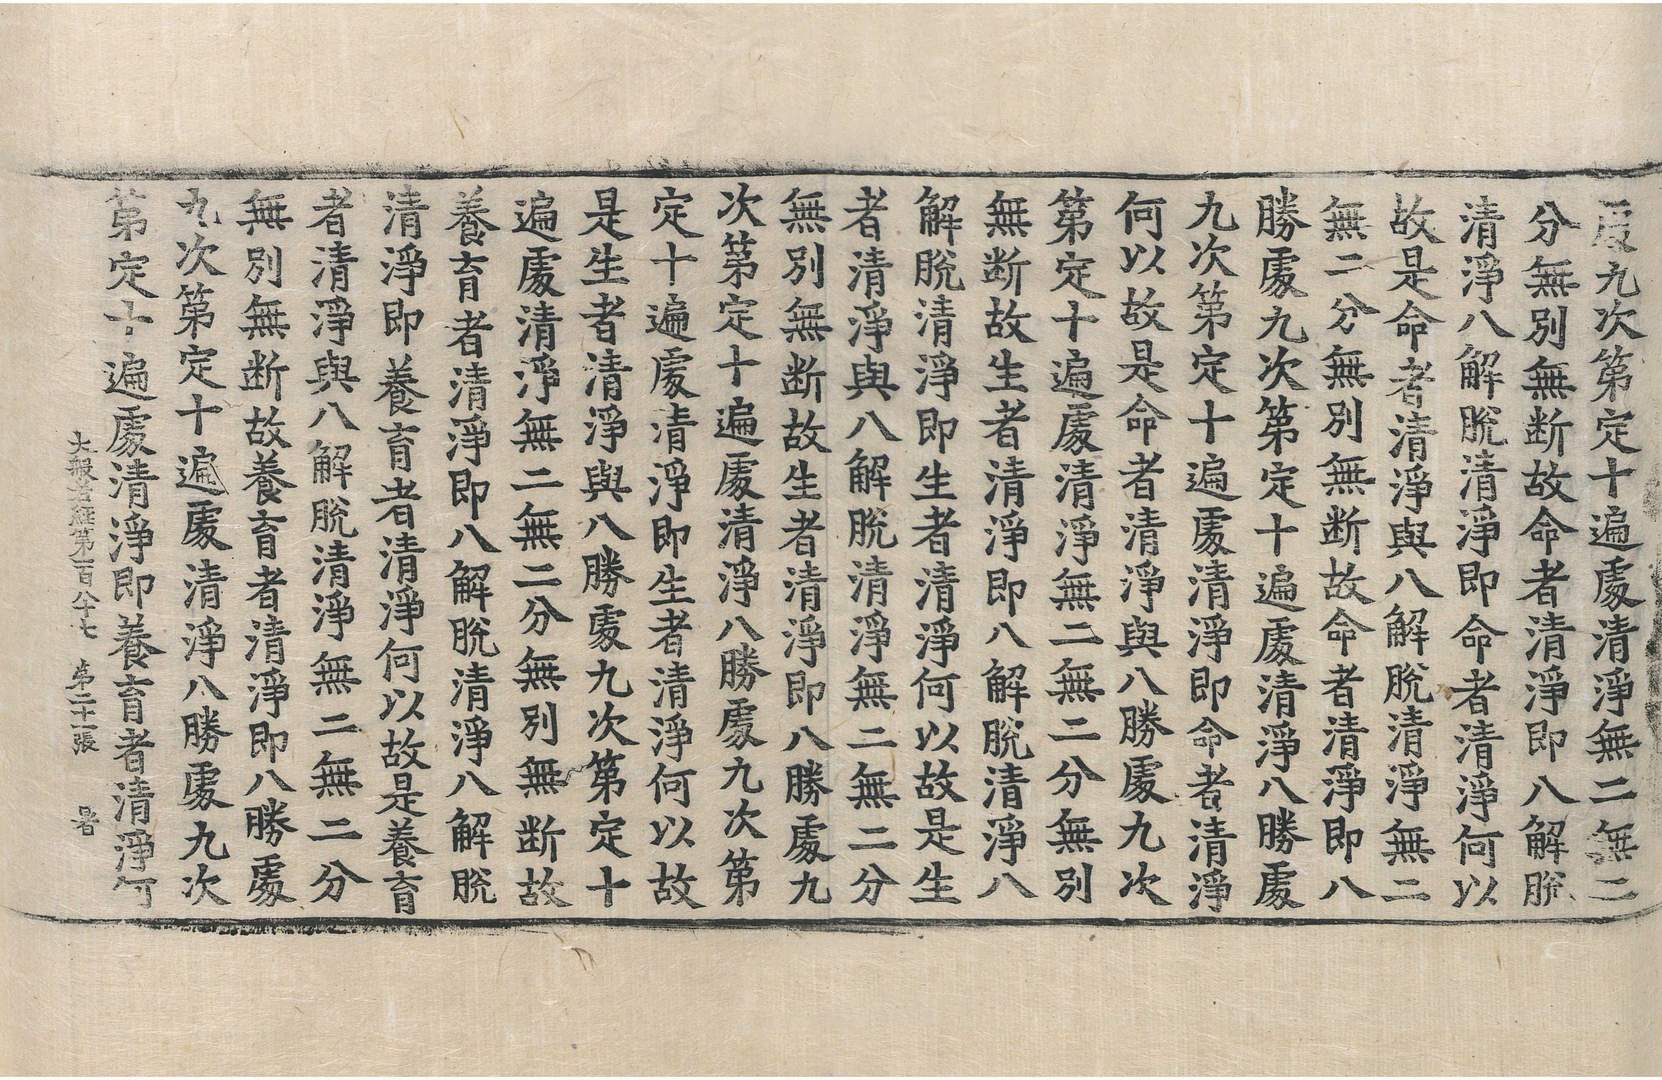 處九次第定十遍處清淨無二無二
分無別無断故命者清淨即八解脫
清淨八解脫清淨即命者清淨何以
故是命者清淨與八解脫清淨無二
無二分無別無断故命者清淨即八
勝處九次第定十遍處清淨八勝處
九次第定十遍處清淨即命者清淨
何以故是命者清淨與八勝處九次
第定十遍處清淨無二無二分無別
無断故生者清淨即八解脫清淨八
解脫清淨即生者清淨何以故是生
者清淨與八解脫清淨無二無二分
無別無断故生者清淨即八勝處九
次第定十遍處清淨八勝處九次第
定十遍處清淨即生者清淨何以故
是生者清淨與八勝處九次第定十
遍處清淨無二無二分無別無断故
養育者清淨即八解脫清淨八解脫
清淨即養育者清淨何以故是養育
者清淨與八解脫清淨無二無二分
無別無断故養育者清淨即八勝處
九次第定十遍處清淨八勝處九次
第定十遍處清淨即養育者清淨何
大般若經第一百八十七 第二十一張 暑